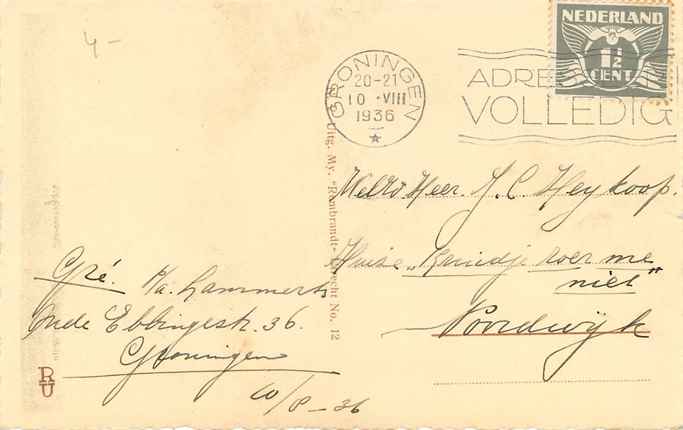 4-
NEDERLAND
1½
CENT
GRONINGEN
20-21
10 · VIII
1936
ADRE
VOLLEDIG
Uitg. My. "Rembrandt" Utrecht No. 12
WelEd. Heer. J. C. Heykoop.
Huize "Kruidje roer me
niet"
Noordwijk
Gré.
p/a. Lammerts
Oude Ebbingestr. 36.
Groningen
10/8-36
RU